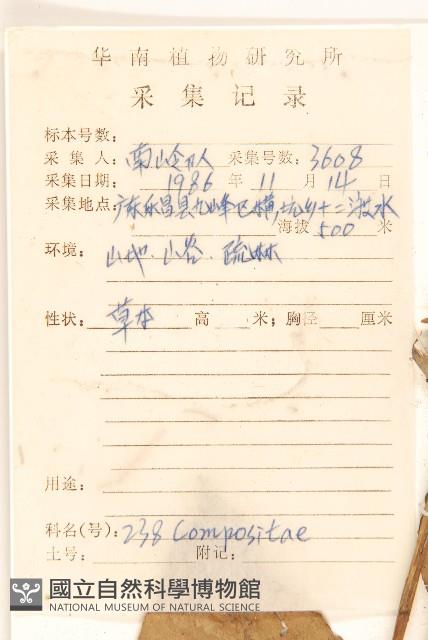 华南植物研究所
采集记录
标本号数:
采集人: 南岭队 采集号数: 3608
采集日期: 1986 年 11 月 14 日
采集地点: 广东乐昌县九峰区横坑乡十二渡水
海拔 500 米
环境: 山地.山谷.疏林
性状: 草本 高 米; 胸径 厘米
用途:
科名(号): 238 Compositae
土号: 附记:
國立自然科學博物館
NATIONAL MUSEUM OF NATURAL SCIENCE